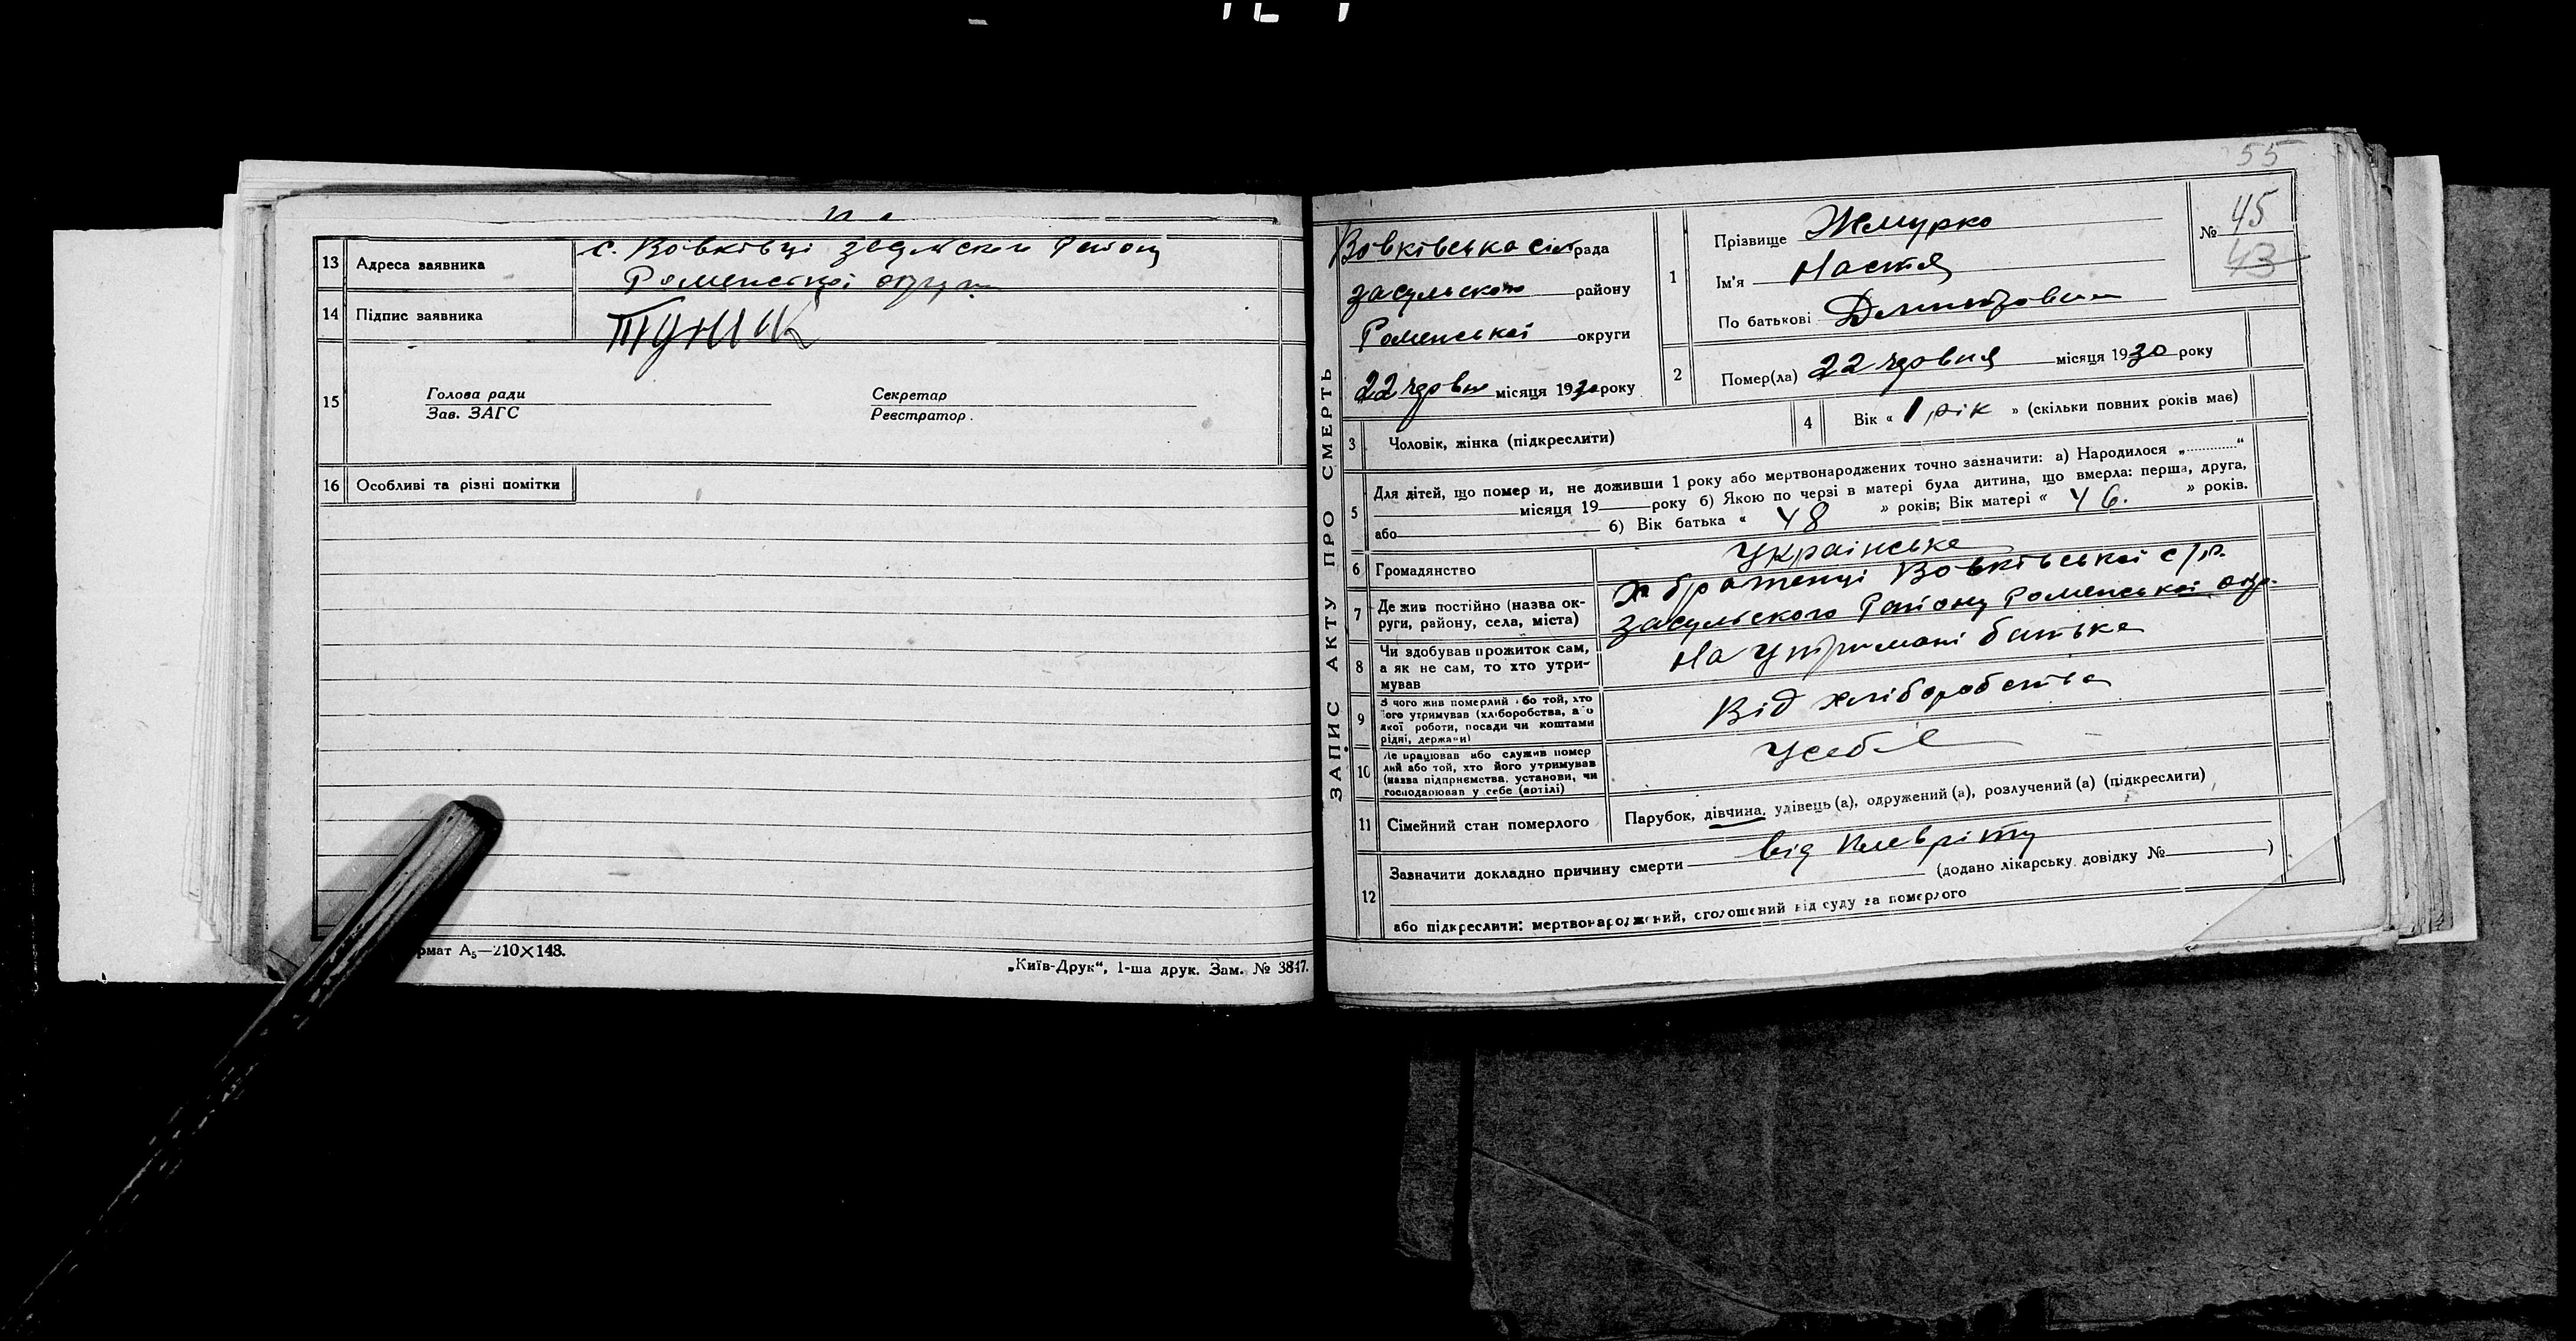 13 Адреса заявника с. Вовківці
Роменської округи
14 Підпис заявника
15 Голова ради Секретар
Зав. ЗАГС Реєстратор.
16 Особливі та різні помітки
рмат А₅—210×148.
„Київ-Друк“, 1-ша друк. Зам. № 3847.
55
ЗАПИС АКТУ ПРО СМЕРТЬ
Вовківська сіл рада
засульского району
Роменської округи
22 чрвня місяця 1930 року
1 Прізвище Жмурко
Ім'я Настя
По батькові Дмитровна
№ 45
43
2 Помер(ла) 22 чрвня місяця 1930 року
3 Чоловік, жінка (підкреслити)
4 Вік « 1 рік » (скільки повних років має)
5 Для дітей, що померли, не доживши 1 року або мертвонароджених точно зазначити: а) Народилося „............“
місяця 19 року б) Якою по черзі в матері була дитина, що вмерла: перша, друга,
або б) Вік батька « 48 » років; Вік матері « 46. » років.
6 Громадянство Українське
7 Де жив постійно (назва ок- Вовківської с/р.
руги, району, села, міста) засульского Району Роменської окр.
8 Чи здобував прожиток сам, На утримані батька
а як не сам, то хто утри-
мував
9 З чого жив померлий або той, хто Від хліборобства
його утримував (хліборобства, або
якої роботи, посади чи коштами
рідні, держави)
10 Де працював або служив помер У себе
лий або той, хто його утримував
(назва підприємства, установи, чи
господарював у себе (артілі)
11 Сімейний стан померлого Парубок, дівчина, удівець (а), одружений (а), розлучений (а) (підкреслити)
12 Зазначити докладно причину смерти від плевріту
(додано лікарську довідку № )
або підкреслити: мертвонароджений, оголошений від суду за померлого